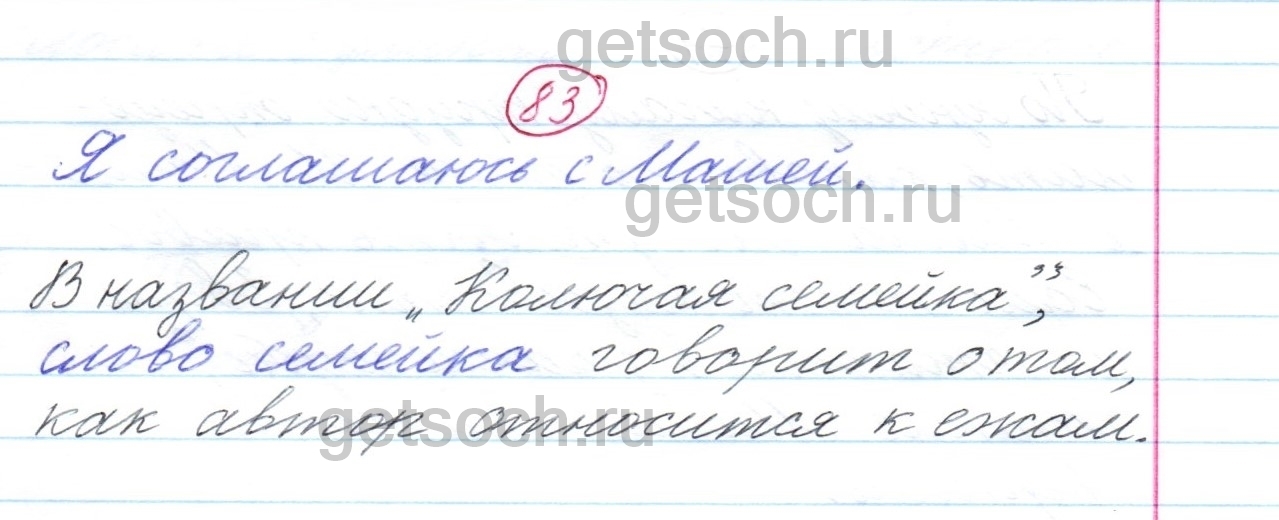 getsoch.ru
83
Я соглашаюсь с Машей.
getsoch.ru
В названии „Колючая семейка”,
слово семейка говорит о том,
как автор относится к ежам.
getsoch.ru